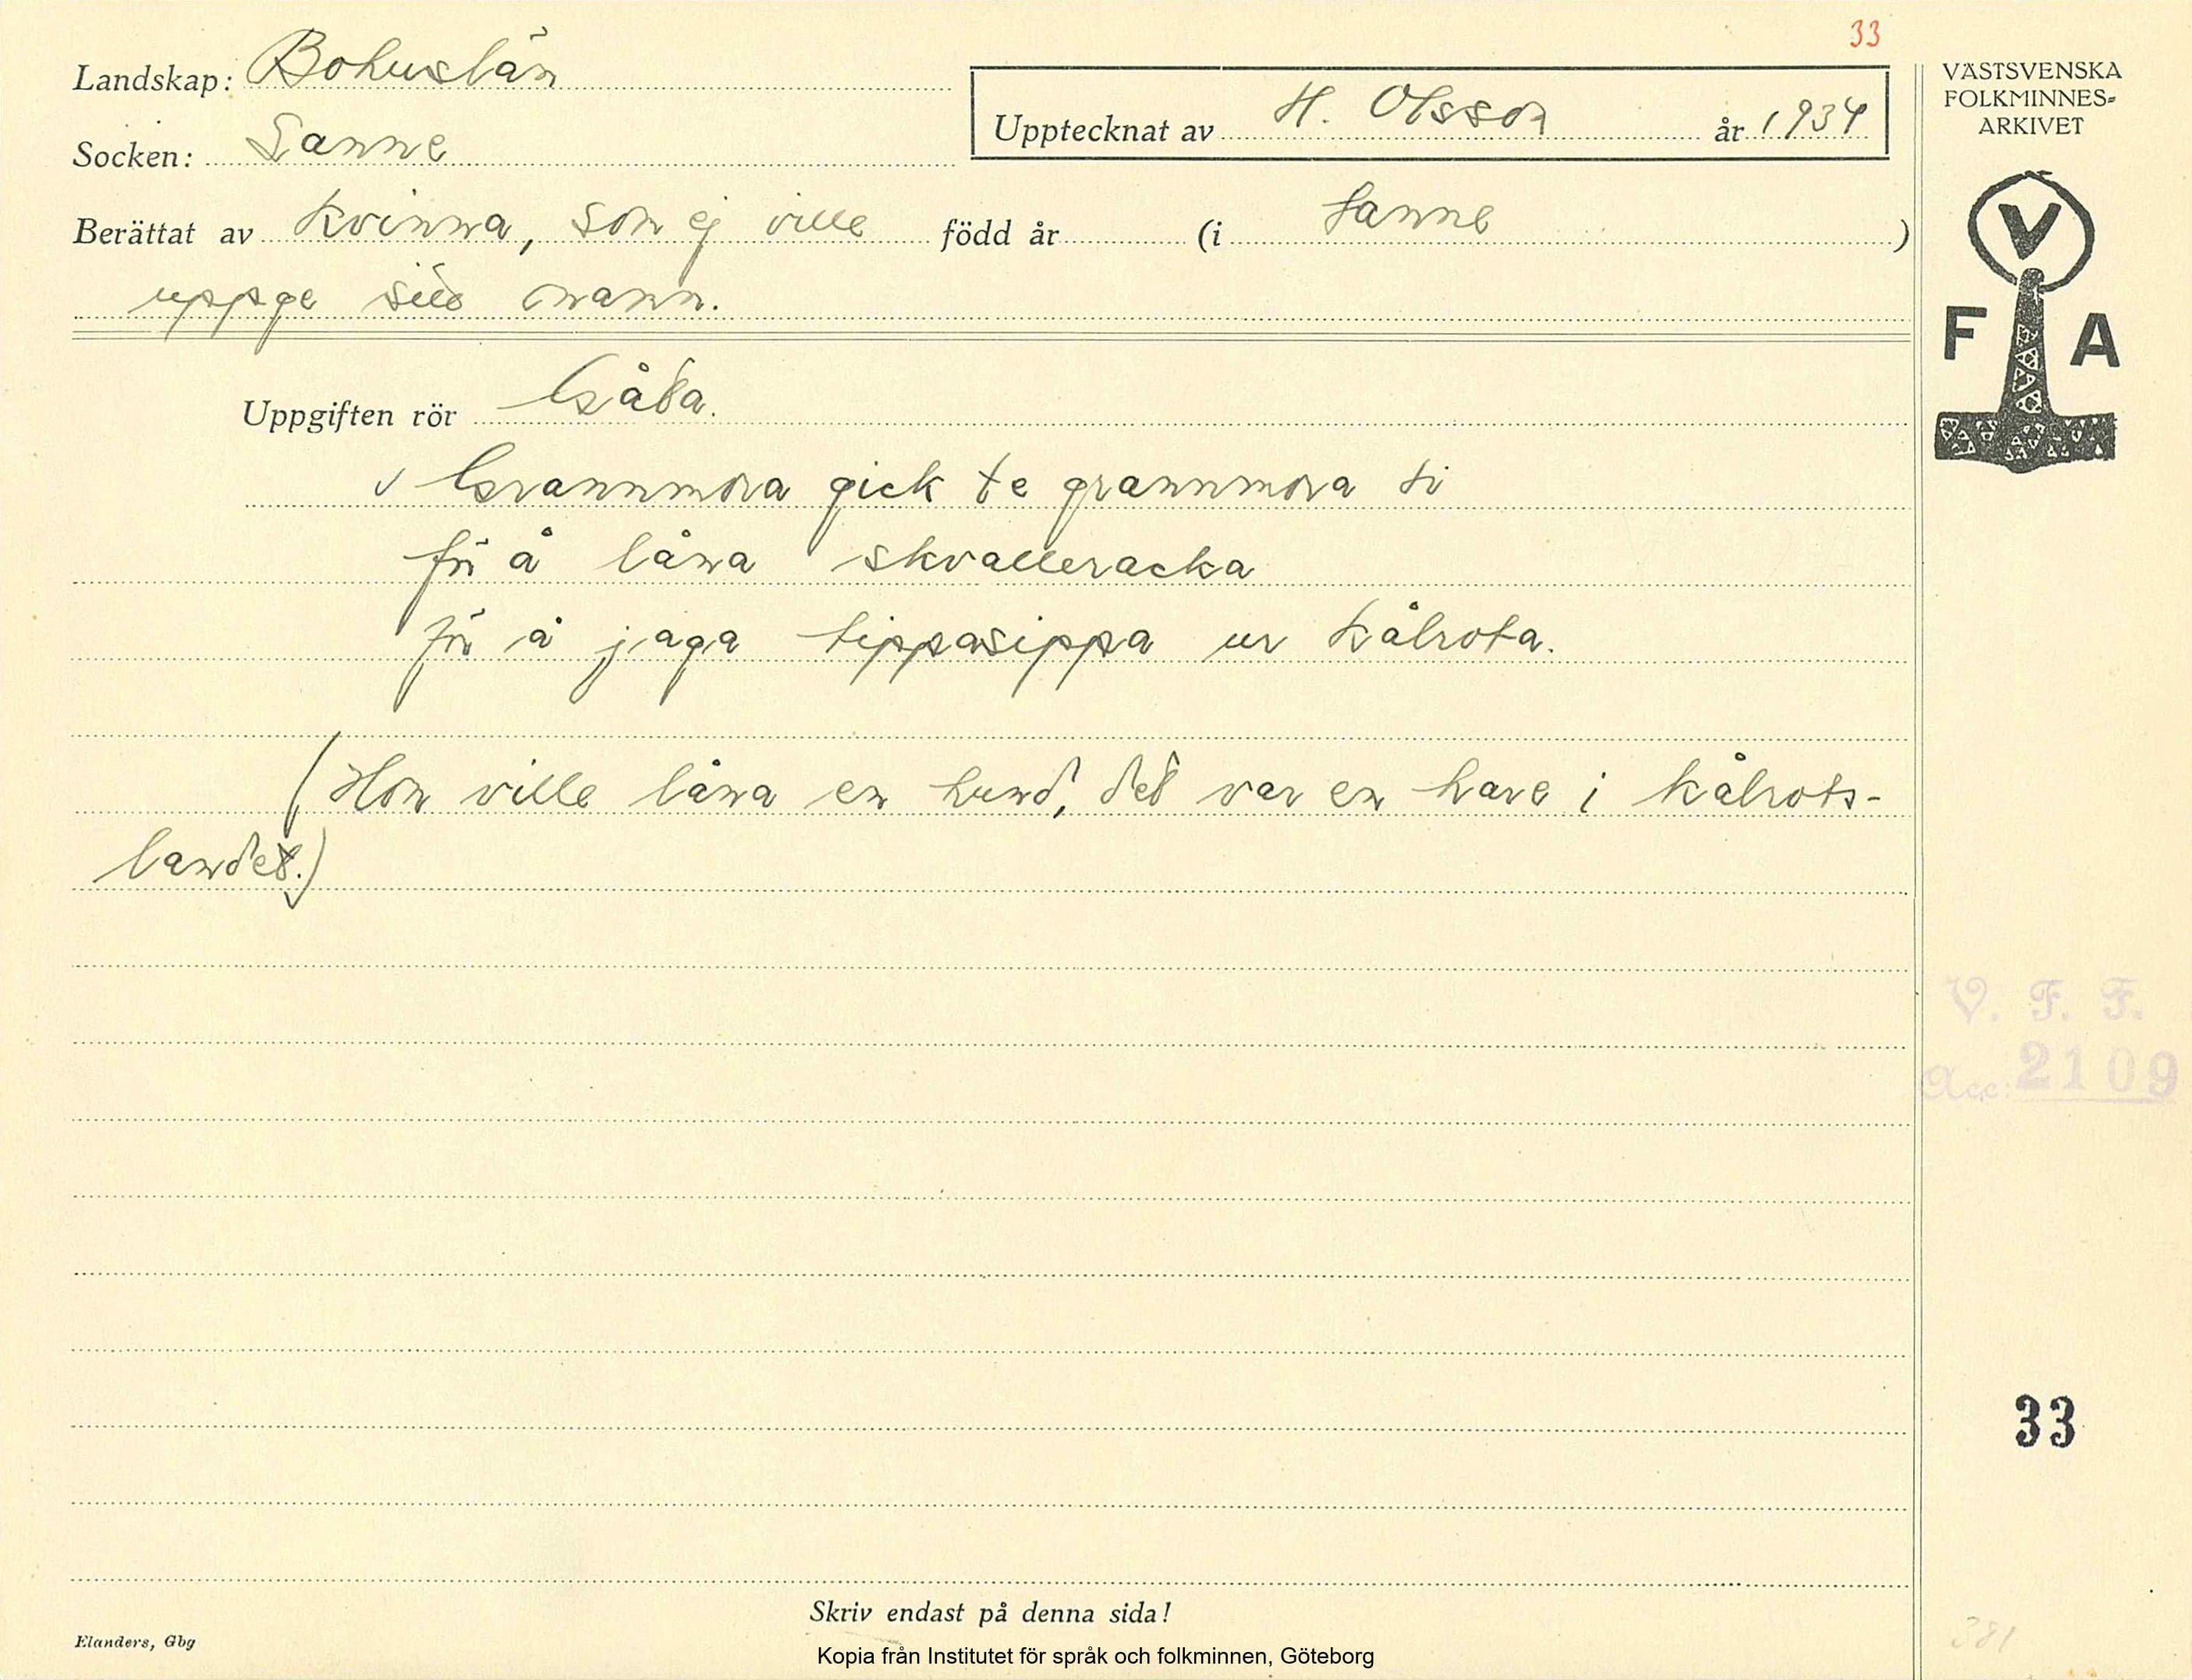 33
Landskap: Bohuslän
Upptecknat av H. Olsson år 1934
Socken: Sanne
Berättat av Kvinna, som ej ville född år (i Sanne)
uppge sitt namn.
Uppgiften rör Gåta.
√ Grannmora gick te grannmora si
för å låna skvalleracka
för å jaga tippasippa ur kålrota.
(Hon ville låna en hund, det var en hare i kålrots-
landet.)
VÄSTSVENSKA
FOLKMINNES-
ARKIVET
V
F A
V. F. F.
Acc. 2109
33
381
Skriv endast på denna sida!
Elanders, Gbg
Kopia från Institutet för språk och folkminnen, Göteborg